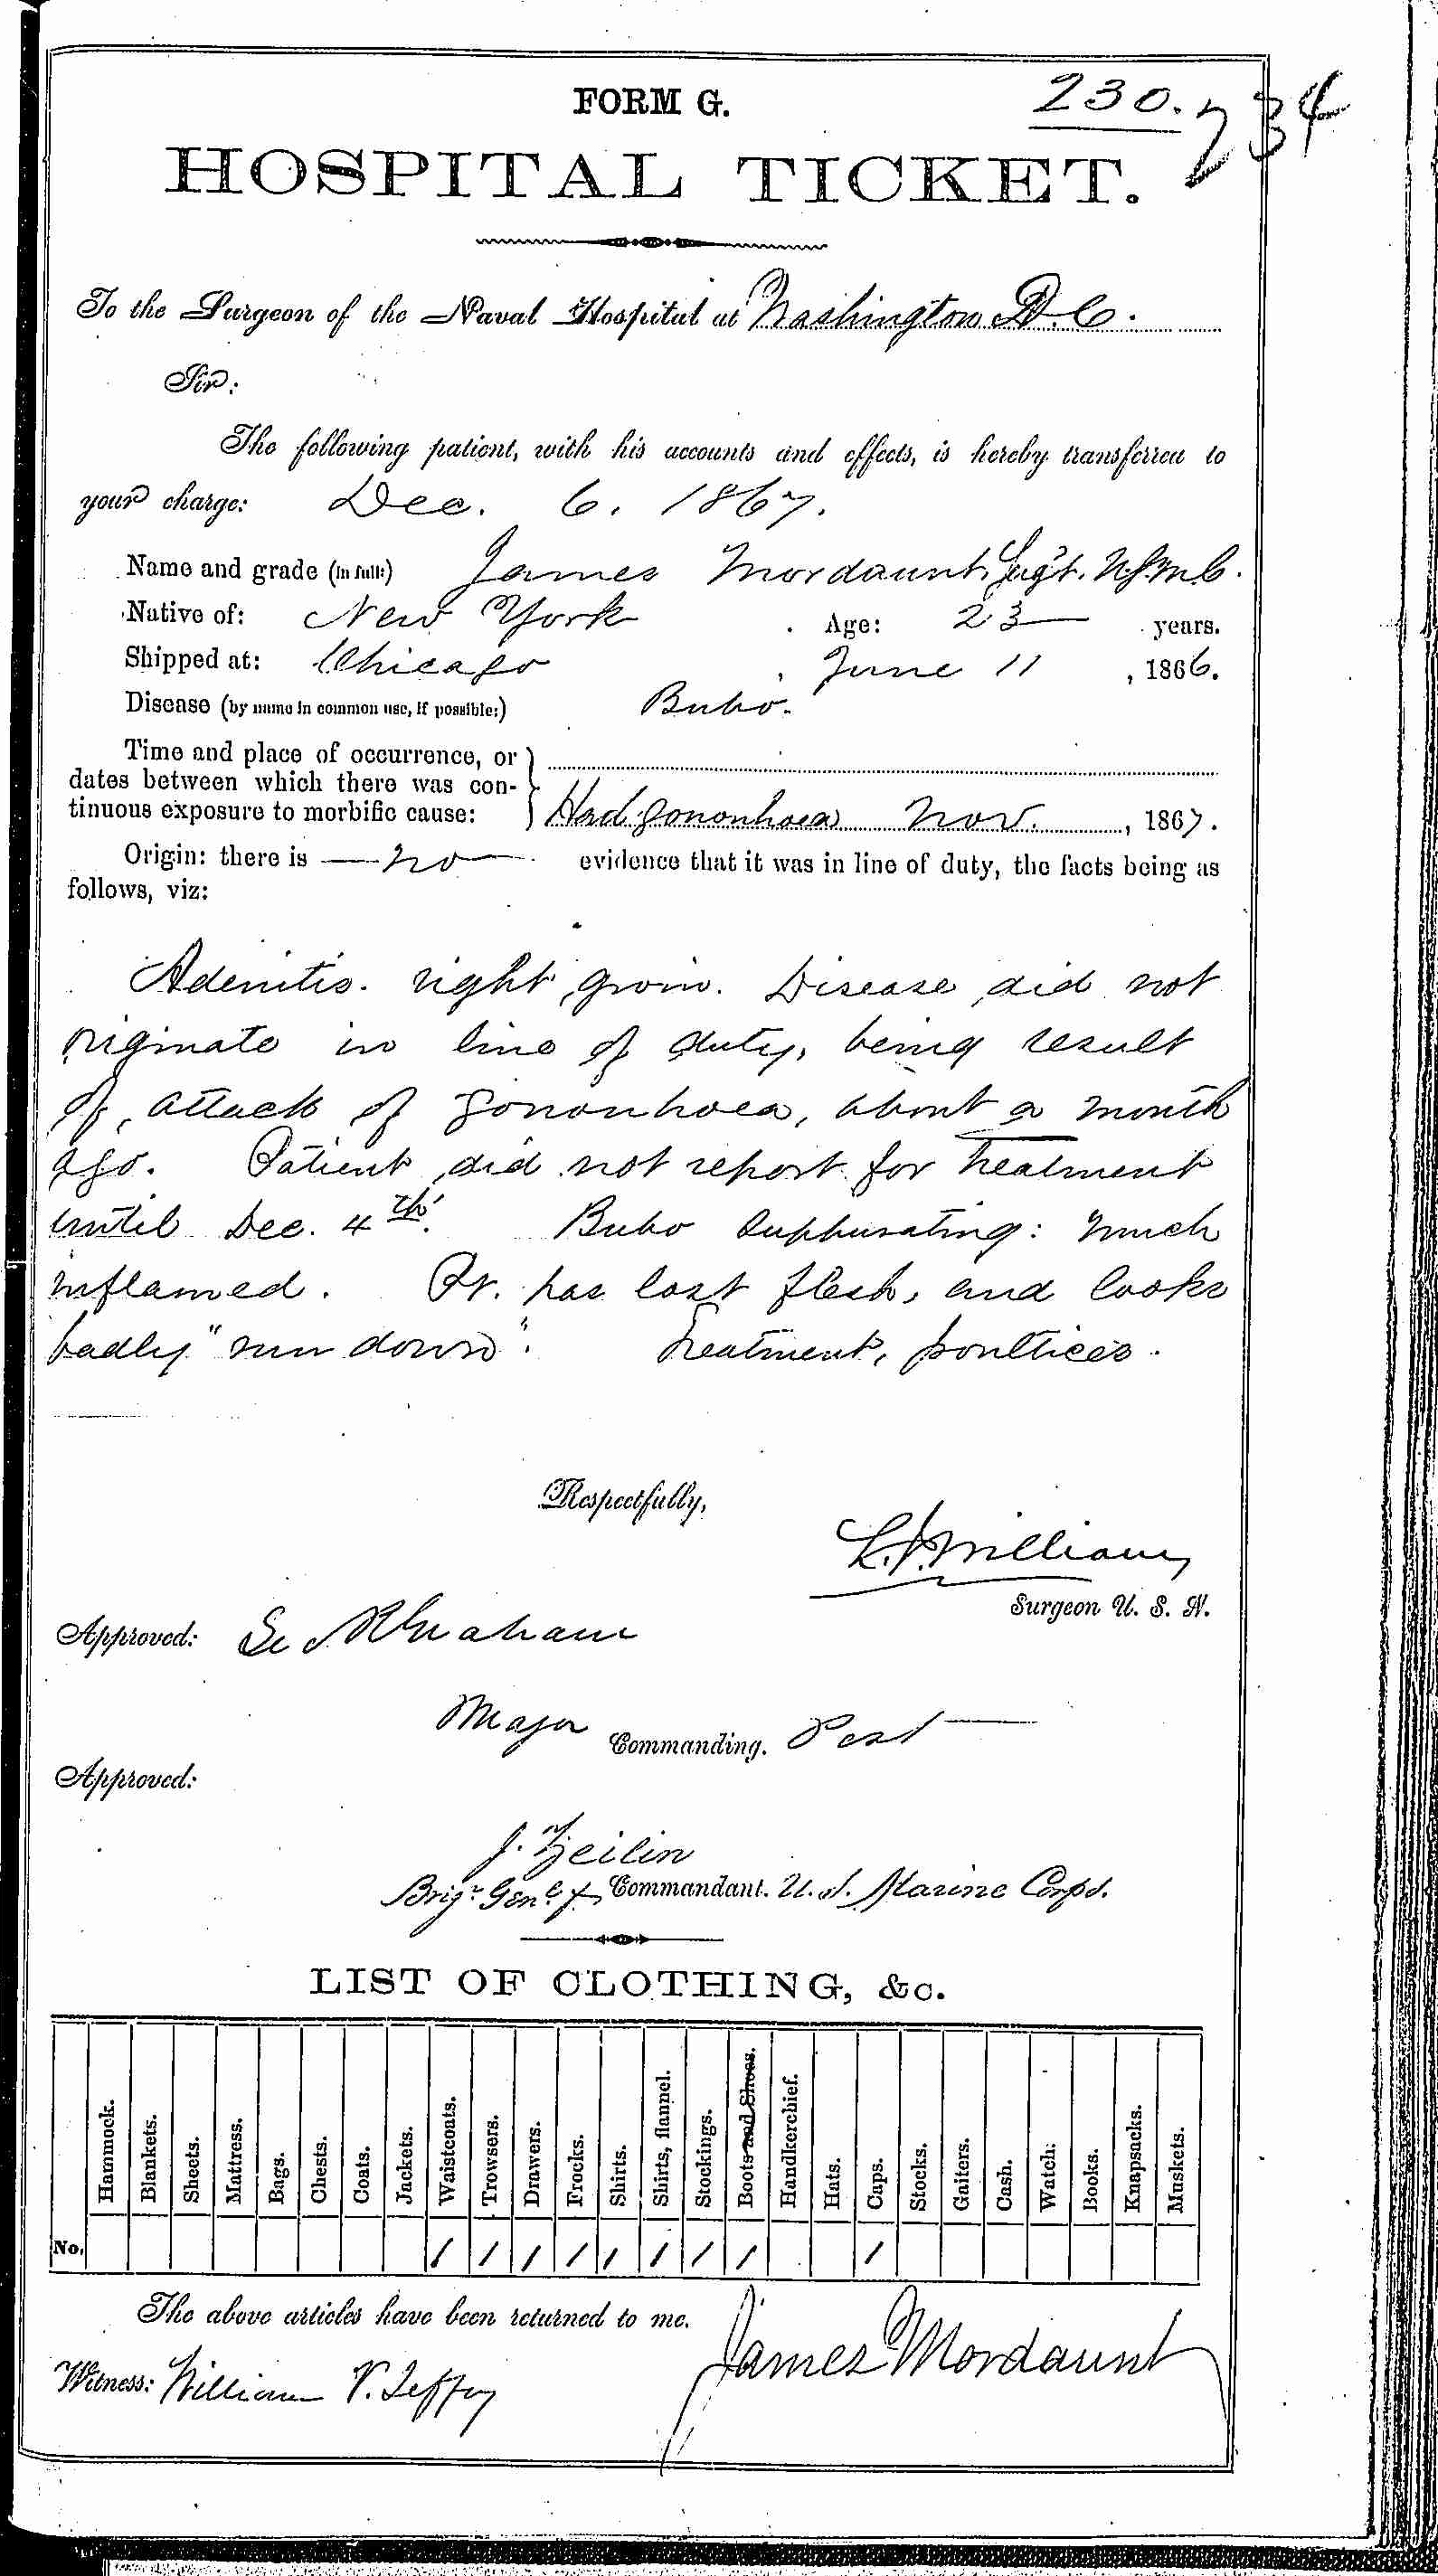 FORM G.
230.
234
HOSPITAL TICKET.
To the Surgeon of the Naval Hospital at Washington D.C.
Sir:
The following patient, with his accounts and effects, is hereby transferred to
your charge: Dec. 6. 1867.
Name and grade (in full:) James Mordaunt, Sergt. U.S.M.C.
Native of: New York . Age: 23 years.
Shipped at: Chicago , June 11 , 1866.
Disease (by name in common use, if possible:) Bubo.
Time and place of occurrence, or
dates between which there was con-
tinuous exposure to morbific cause: Had gonorrhoea Nov. , 1867.
Origin: there is no evidence that it was in line of duty, the facts being as
follows, viz:
Adenitis. right groin. Disease did not
originate in line of duty, being result
of attack of gonorrhoea, about a month
ago. Patient did not report for treatment
until Dec. 4th. Bubo suppurating: much
inflamed. Pt. has lost flesh, and looks
badly "run down". Treatment, poultices.
Respectfully,
Williams
Surgeon U. S. N.
Approved: Graham
Major Commanding. Post
Approved:
J. Zeilin
Brigr. Genl. & Commandant. U.S. Marine Corps.
LIST OF CLOTHING, &c.
Hammock. Blankets. Sheets. Mattress. Bags. Chests. Coats. Jackets. Waistcoats. Trowsers. Drawers. Frocks. Shirts. Shirts, flannel. Stockings. Boots and Shoes. Handkerchief. Hats. Caps. Stocks. Gaiters. Cash. Watch. Books. Knapsacks. Muskets.
No. / / / / / / / / /
The above articles have been returned to me.
James Mordaunt
Witness: William V.